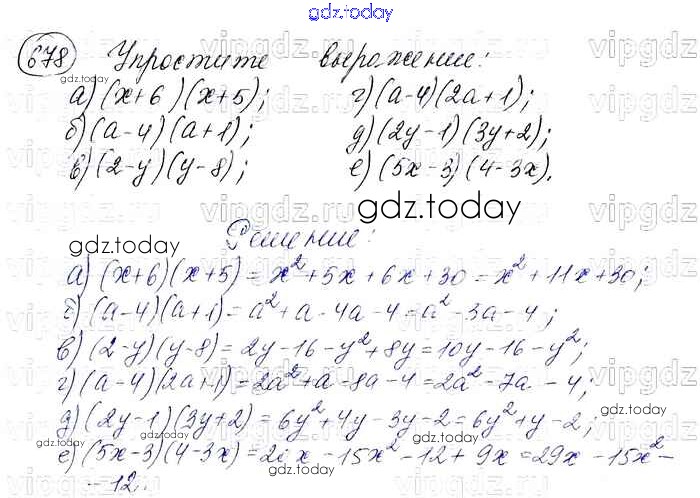 gdz.today
678 Упростите выражение:
а) (x+6)(x+5); г) (a-4)(2a+1);
б) (a-4)(a+1); д) (2y-1)(3y+2);
в) (2-y)(y-8); е) (5x-3)(4-3x).
gdz.today
Решение:
а) (x+6)(x+5) = x²+5x+6x+30 = x²+11x+30;
б) (a-4)(a+1) = a²+a-4a-4 = a²-3a-4;
в) (2-y)(y-8) = 2y-16-y²+8y = 10y-16-y²;
г) (a-4)(2a+1) = 2a²+a-8a-4 = 2a²-7a-4;
д) (2y-1)(3y+2) = 6y²+4y-3y-2 = 6y²+y-2;
е) (5x-3)(4-3x) = 20x-15x²-12+9x = 29x-15x²-
-12.